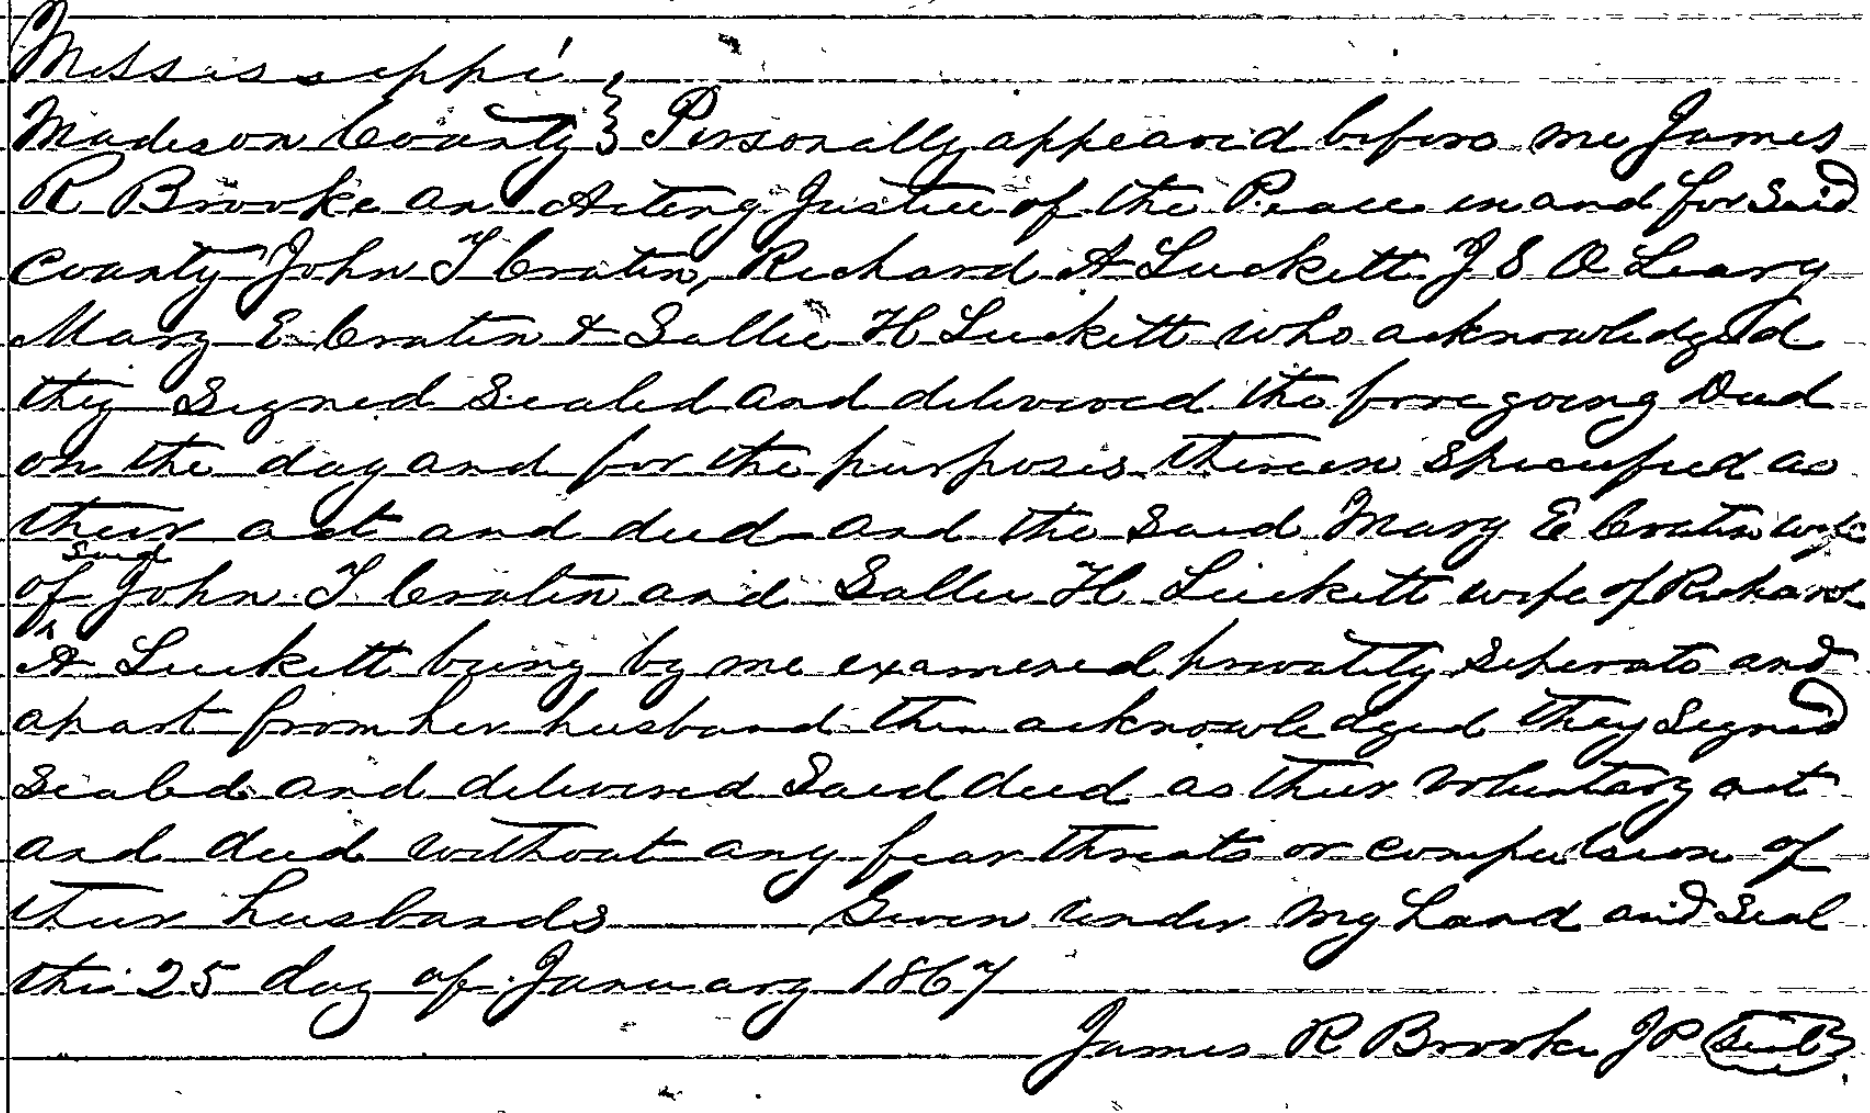 Mississippi
Madison County } Personally appeared before me James
R Brooke an Acting Justice of the Peace in and for Said
County John T Cratin, Richard A Luckett J S O Leary
Mary E Cratin & Sallie H Luckett who acknowledged
they Signed Sealed and delivered the foregoing Deed
on the day and for the purposes therein Specified as
their act and deed and the Said Mary E Cratin wife
of said John T Cratin and Sallie H Luckett wife of Richard
A Luckett being by me examined privately Seperate and
apart from her husband then acknowledged they Signed
Sealed and delivered Said deed as their voluntary act
and deed without any fear threats or compulsion of
their husbands Given under my hand and Seal
the 25 day of January 1867
James R Brooke JP Seal